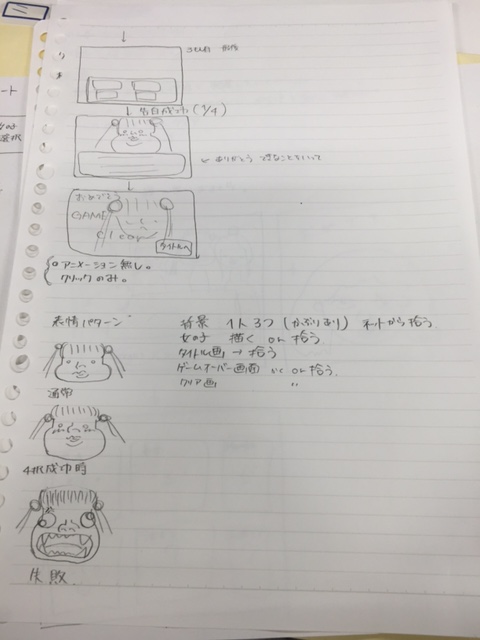 ート
↓
↓ 告白成功 (1/4)
ありがとう
↓
おめでとう
GAME
Clear
タイトルへ
アニメーション無し。
クリックのみ。
表情パターン
通常
4択成功時
失敗
背景 1人3つ (かぶりあり) ネットから拾う
女の子 描く or 拾う
タイトル画 → 拾う
ゲームオーバー画面 〃 or 拾う
クリア画 〃
選択